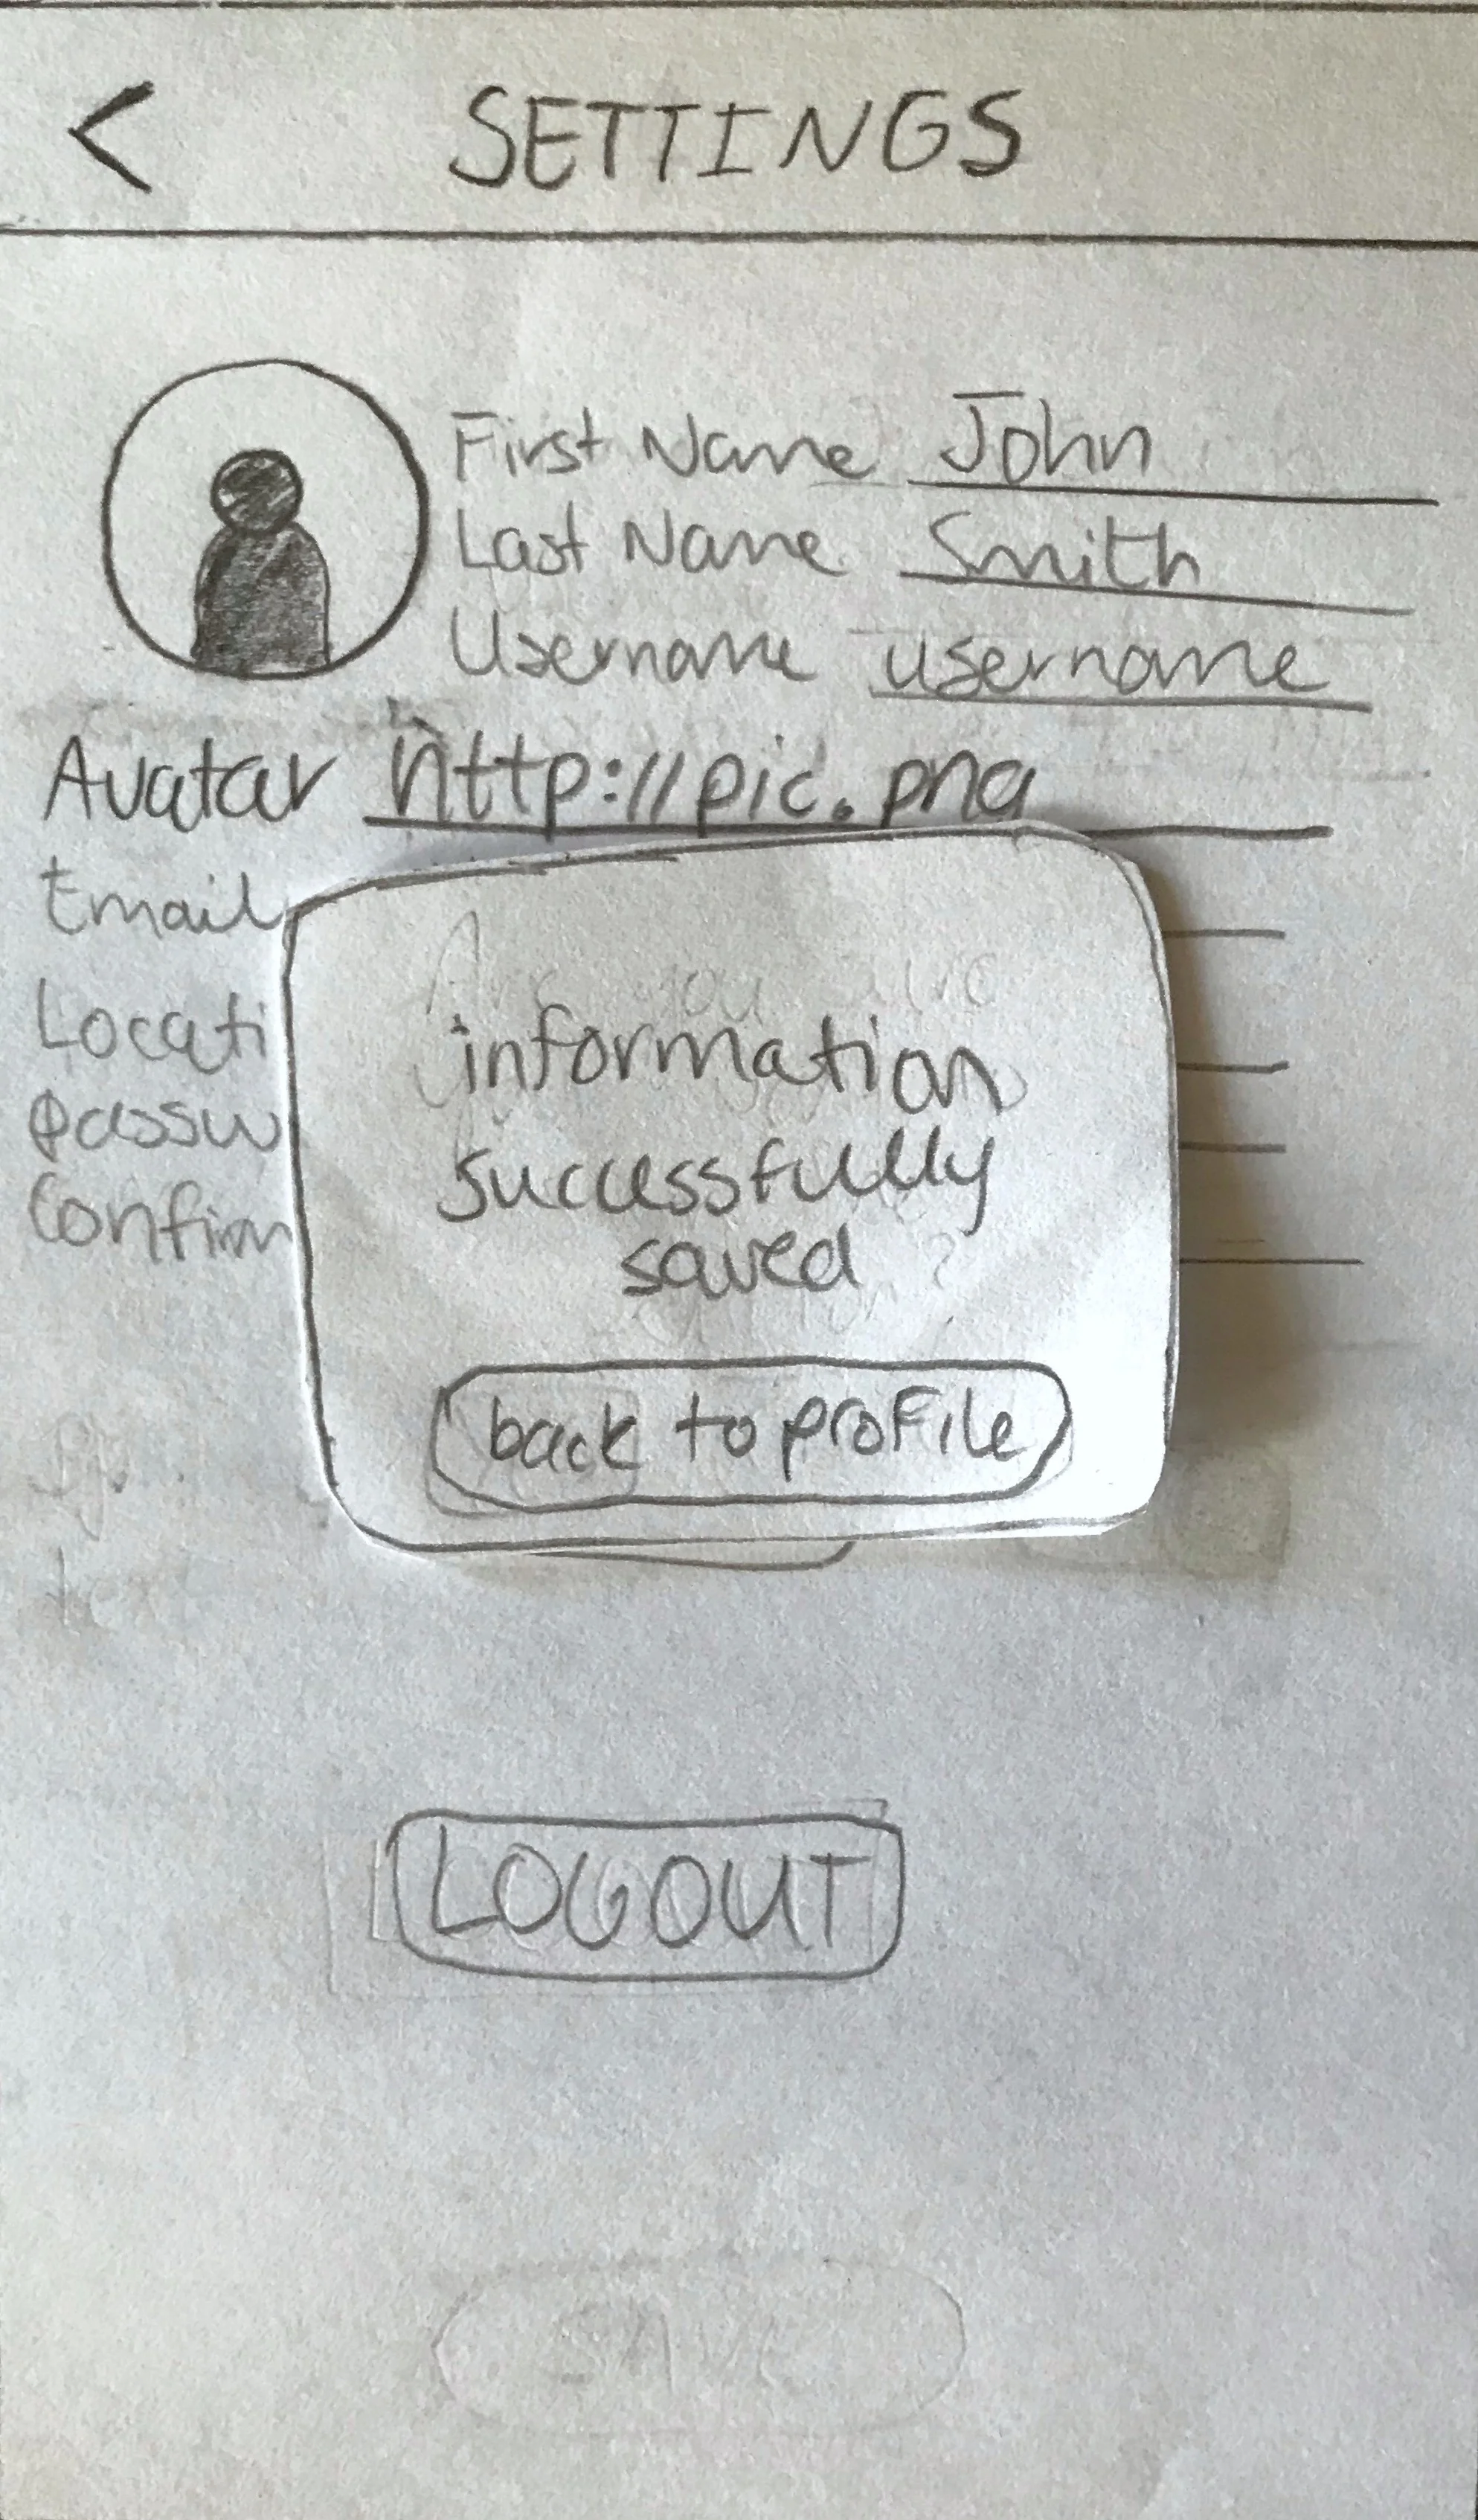 < SETTINGS
First Name John
Last Name Smith
Username username
Avatar http://pic.png
Email
Locati
passw
Confirm
Are you sure
information
successfully
saved ?
back to profile
text
LOGOUT
SAVE